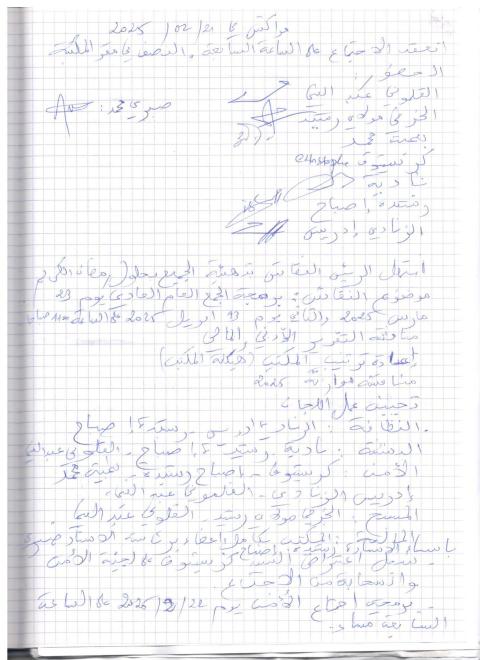 مراكش في 21/02/2025
انعقد الاجتماع على الساعة السابعة والنصف في مقر المكتبة
الحضور:
القلوبي عبد النبي
الحرفي مولاي رشيد
صبري محمد:
نعمة محمد
كريستوف christophe
نادية
رشيدة إصباح
الزيادي إدريس
استهل الرئيس النقاش بتهنئة الجميع بحلول رمضان الكريم
موضوع النقاش: برمجة الجمع العام العادي يوم 29
مارس 2025 والثاني يوم 19 أبريل 2025 على الساعة
مناقشة التقرير الأدبي والمالي
إعادة ترتيب المكتب (هيكلة المكتب)
مناقشة موازنة 2025
تحيين عمل اللجان
النظافة: الزيادي إدريس - رشيدة إصباح
البستنة: نادية - رشيدة إصباح - القلوبي عبد النبي
الأمن: كريستوف - إصباح رشيدة - نعمة محمد
إدريس الزيادي - القلوبي عبد النبي
المسبح: الحرفي مولاي رشيد - القلوبي عبد النبي
المالية: المكتب بكامل أعضائه برئاسة الأستاذ صبري
باستثناء الأستاذة رشيدة إصباح
سجل اعتراض السيد كريستوف على لجنة الأمن
وانسحابه من الاجتماع
برمجة اجتماع الأمن يوم 22/2/2025 على الساعة
السابعة مساء.